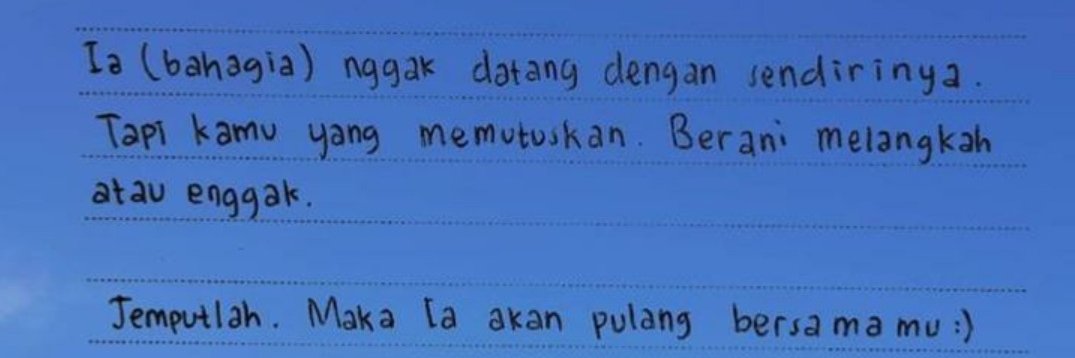 Ia (bahagia) nggak datang dengan sendirinya.
Tapi kamu yang memutuskan. Berani melangkah
atau enggak.
Jemputlah. Maka Ia akan pulang bersamamu :)